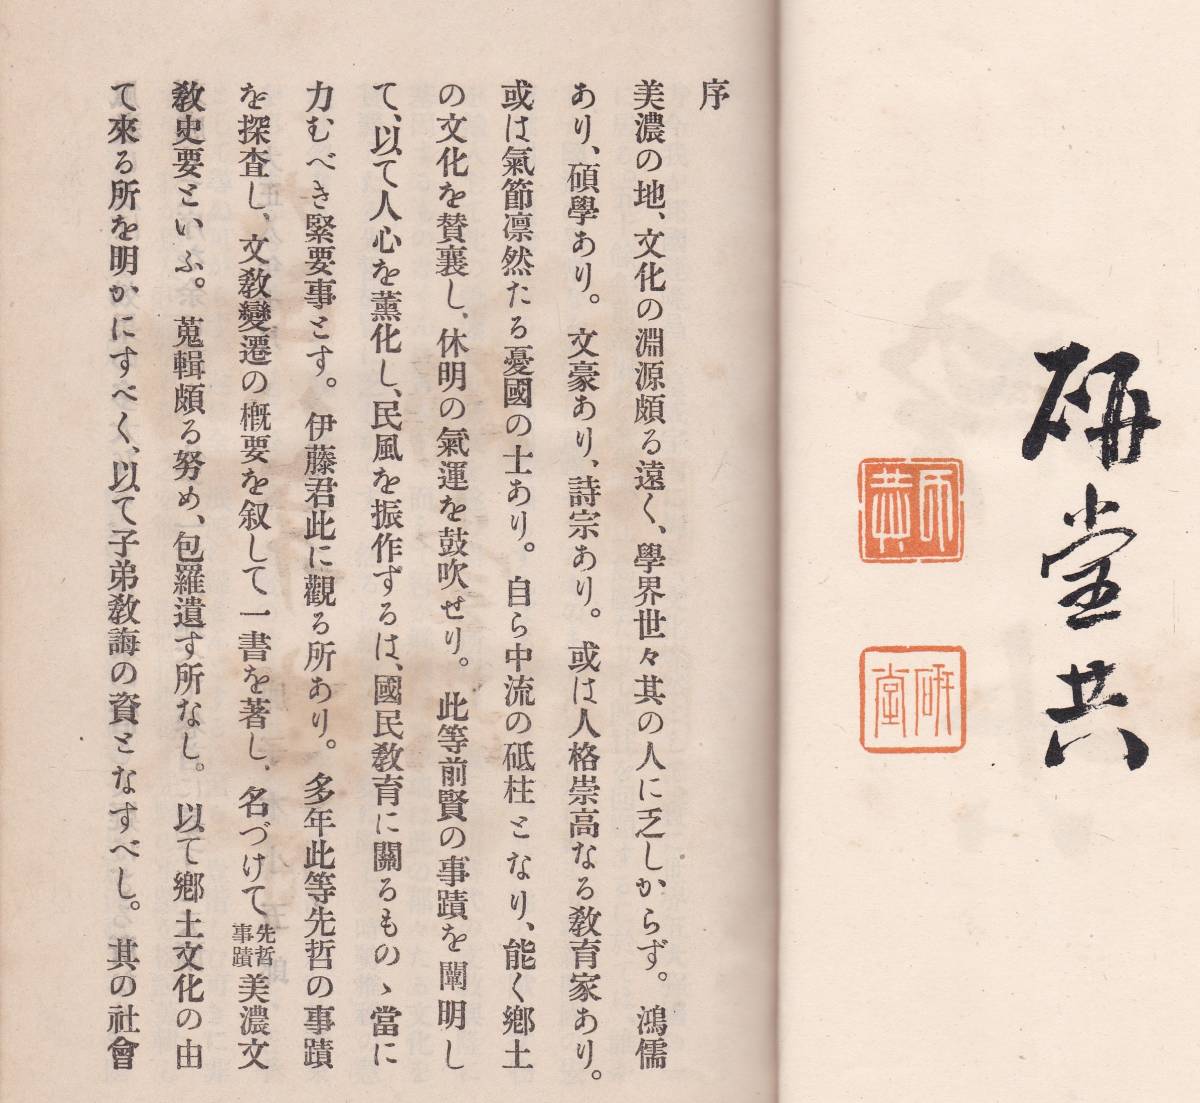 研堂共
研堂
序
美濃の地、文化の淵源頗る遠く、學界世々其の人に乏しからず。鴻儒
あり、碩學あり。文豪あり、詩宗あり。或は人格崇高なる教育家あり。
或は氣節凛然たる憂國の士あり。自ら中流の砥柱となり、能く鄕土
の文化を賛襄し、休明の氣運を鼓吹せり。此等前賢の事蹟を闡明し
て、以て人心を薫化し、民風を振作するは、國民教育に關るものゝ當に
力むべき緊要事とす。伊藤君此に觀る所あり。多年此等先哲の事蹟
を探査し、文教變遷の概要を叙して一書を著し、名づけて先哲事蹟美濃文
教史要といふ。蒐輯頗る努め、包羅遺す所なし。以て鄕土文化の由
て來る所を明かにすべく、以て子弟教誨の資となすべし。其の社會